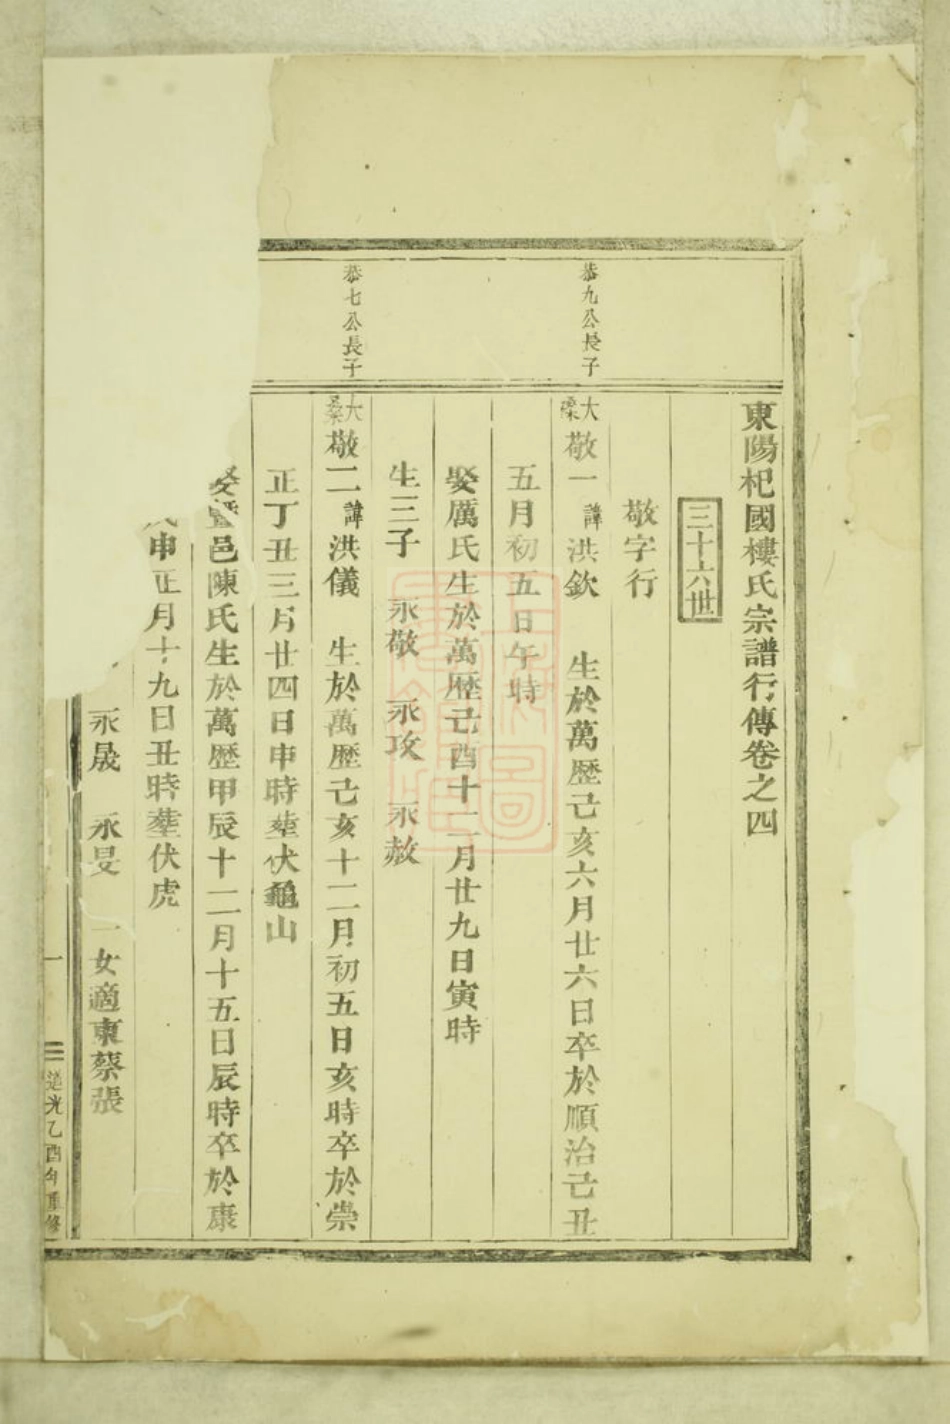 東陽杞國樓氏宗譜行傳卷之四
三十六世
敬字行
恭九公長子
大
敬一 諱洪欽 生於萬歷己亥六月廿六日卒於順治己丑
五月初五日午時
娶厲氏生於萬歷己酉十二月廿九日寅時
生三子 永敬 永攻 永赦
恭七公長子
大桑
敬二 諱洪儀 生於萬歷己亥十二月初五日亥時卒於崇
正丁丑三月廿四日申時塟伏龜山
娶 邑陳氏生於萬歷甲辰十二月十五日辰時卒於康
申正月十九日丑時塟伏虎
永晟 永旻 一女適東蔡張
一
道光乙酉年重修